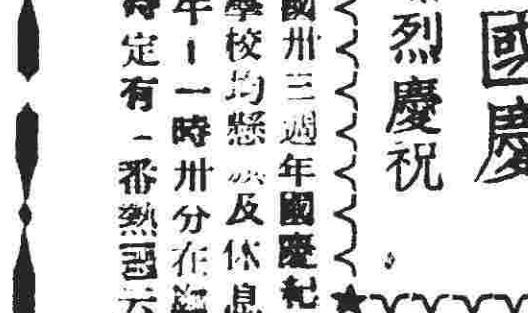 國慶
烈慶祝
國卅三週年國慶紀
學校均懸及休息
年一一時卅分在
時定有一番熱